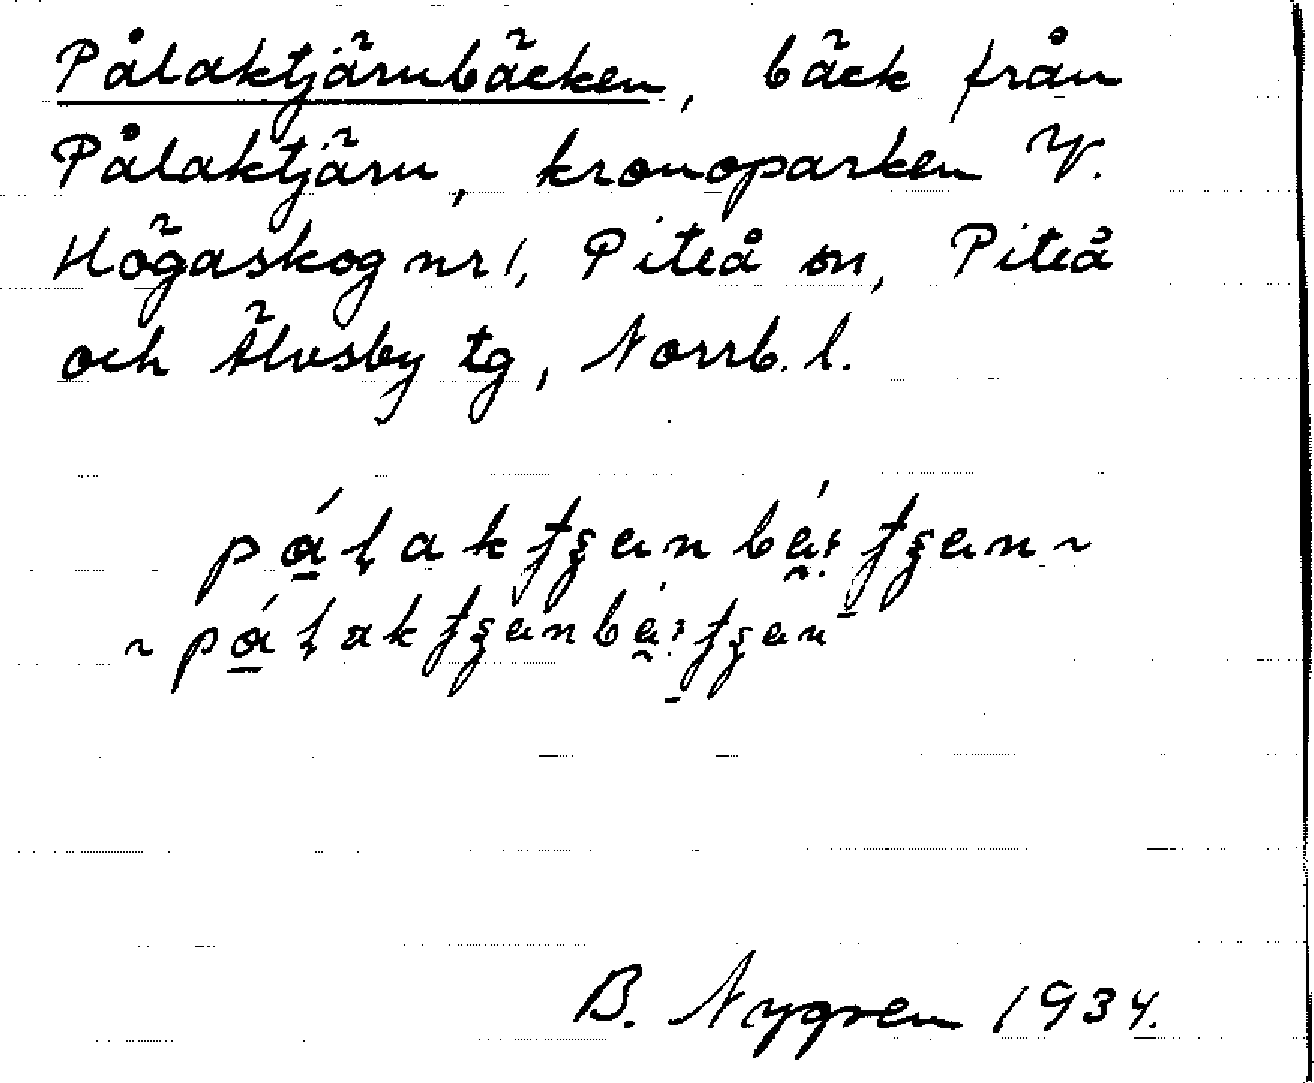 Pålaktjärnbäcken, bäck från
Pålaktjärn, kronoparken V.
Högaskog nr 1, Piteå sn, Piteå
och Älvsby tg, Norrb. l.
B. Nygren 1934.